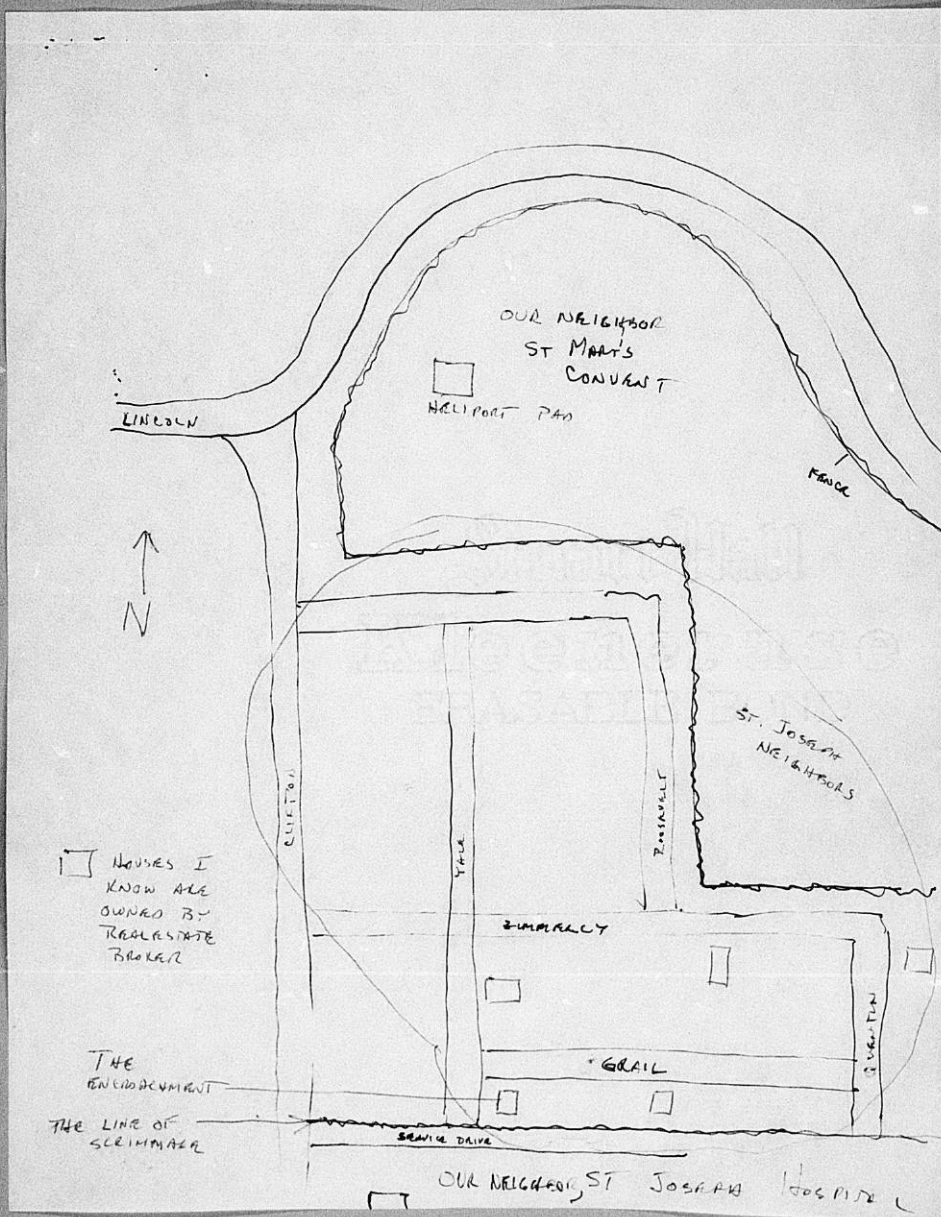 OUR NEIGHBOR
ST MARY'S
CONVENT
HELIPORT PAD
LINCOLN
FENCE
N
ST. JOSEPH
NEIGHBORS
CLIFTON
YALE
ROOSEVELT
HOUSES I
KNOW ARE
OWNED BY
REALESTATE
BROKER
ZIMMERLY
QUENTIN
GRAIL
THE
ENCROACHMENT
THE LINE OF
SCRIMMAGE
SERVICE DRIVE
OUR NEIGHBOR, ST JOSEPH HOSPITAL